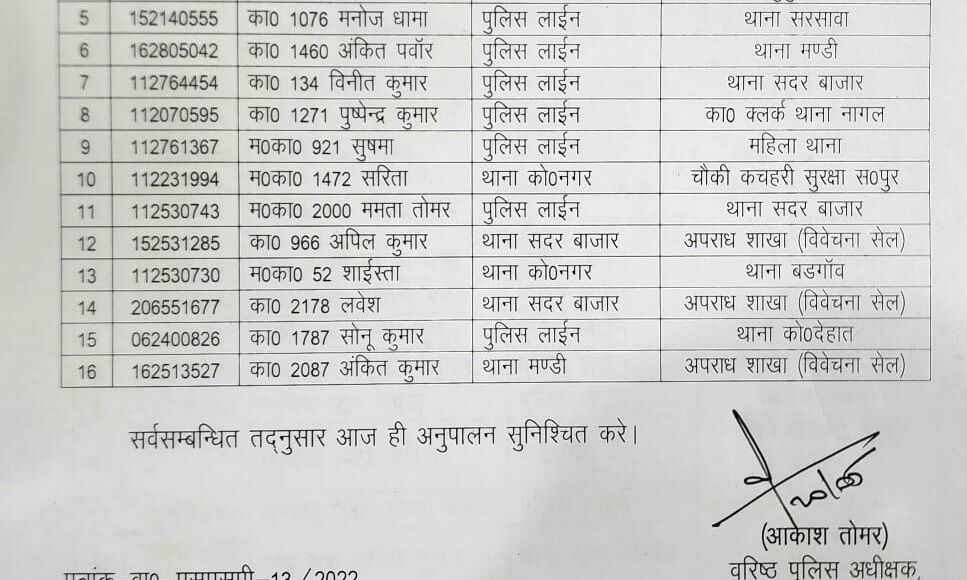 5 152140555 का0 1076 मनोज धामा पुलिस लाईन थाना सरसावा
6 162805042 का0 1460 अंकित पवॉर पुलिस लाईन थाना मण्डी
7 112764454 का0 134 विनीत कुमार पुलिस लाईन थाना सदर बाजार
8 112070595 का0 1271 पुष्पेन्द्र कुमार पुलिस लाईन का0 क्लर्क थाना नागल
9 112761367 म0का0 921 सुषमा पुलिस लाईन महिला थाना
10 112231994 म0का0 1472 सरिता थाना को0नगर चौकी कचहरी सुरक्षा स0पुर
11 112530743 म0का0 2000 ममता तोमर पुलिस लाईन थाना सदर बाजार
12 152531285 का0 966 अपिल कुमार थाना सदर बाजार अपराध शाखा (विवेचना सेल)
13 112530730 म0का0 52 शाईस्ता थाना को0नगर थाना बडगॉव
14 206551677 का0 2178 लवेश थाना सदर बाजार अपराध शाखा (विवेचना सेल)
15 062400826 का0 1787 सोनू कुमार पुलिस लाईन थाना को0देहात
16 162513527 का0 2087 अंकित कुमार थाना मण्डी अपराध शाखा (विवेचना सेल)
सर्वसम्बन्धित तद्नुसार आज ही अनुपालन सुनिश्चित करे।
(आकाश तोमर)
वरिष्ठ पुलिस अधीक्षक,